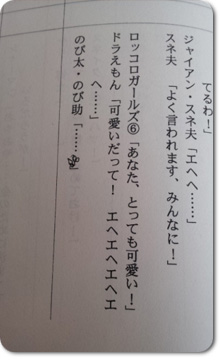 てるわ！」
ジャイアン・スネ夫「エヘヘ……」
スネ夫「よく言われます、みんなに！」
ロッコロガールズ⑥「あなた、とっても可愛い！」
ドラえもん「可愛いだって！　エヘエヘエヘエ
へ……」
のび太・のび助「……」